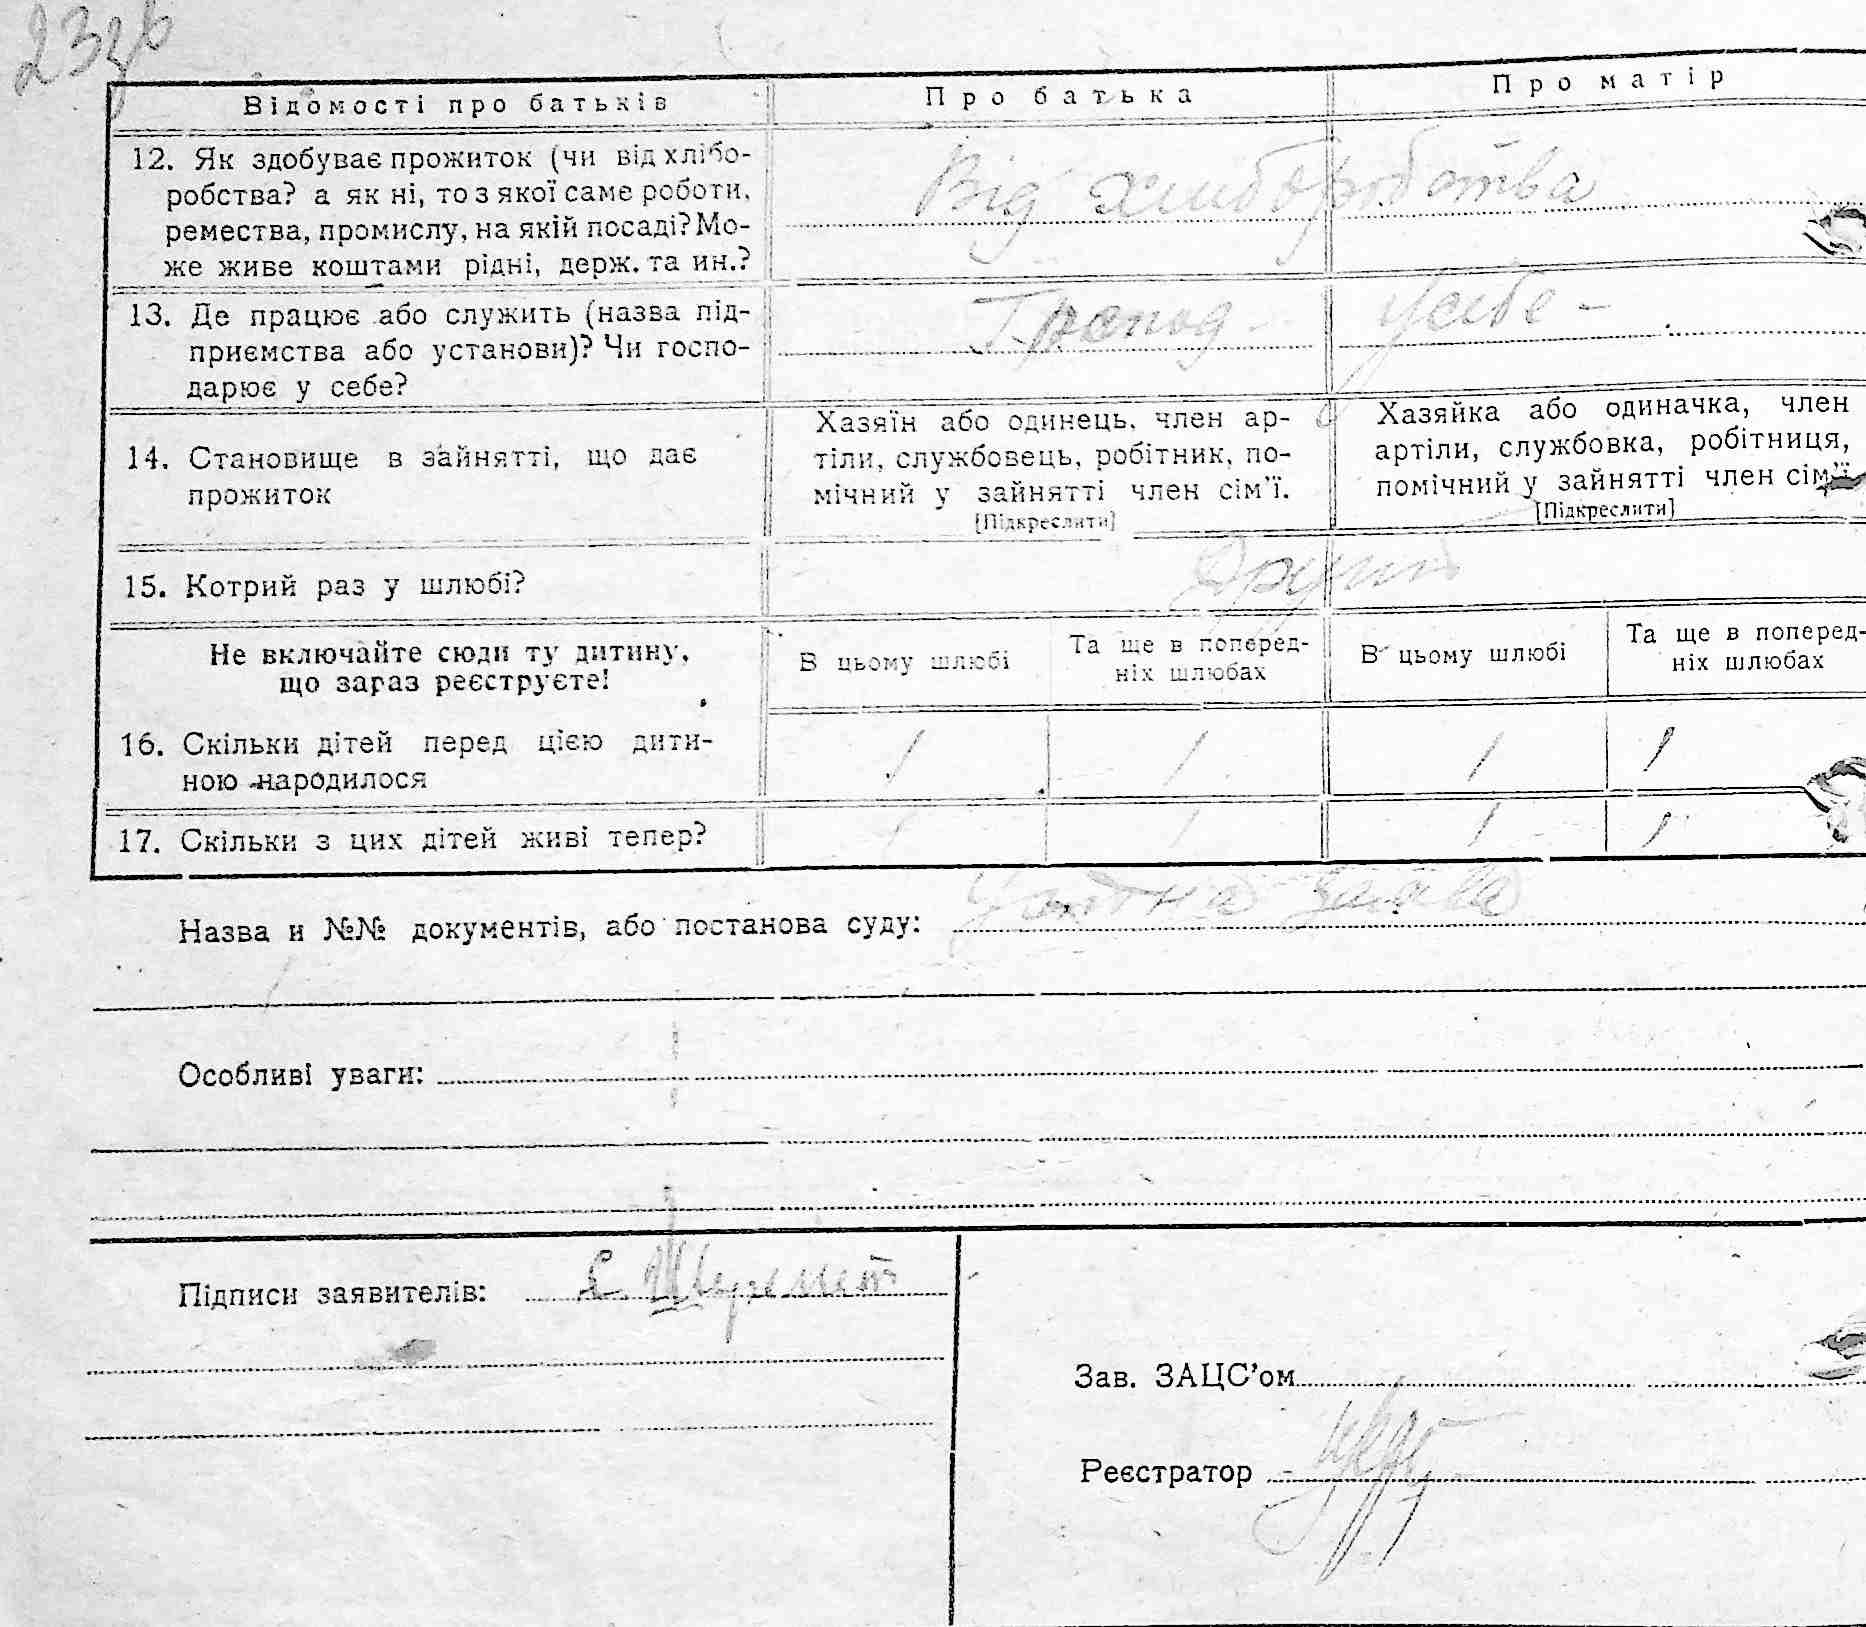 23зв
Відомості про батьків
Про батька
Про матір
12. Як здобуває прожиток (чи від хлібо-
робства? а як ні, то з якої саме роботи,
ремества, промислу, на якій посаді? Мо-
же живе коштами рідні, держ. та ин.?
Від хлиборобства
13. Де працює або служить (назва під-
приємства або установи)? Чи госпо-
дарює у себе?
Господ. Усибе -
14. Становище в зайнятті, що дає
прожиток
Хазяїн або одинець, член ар-
тіли, службовець, робітник, по-
мічний у зайнятті член сім’ї.
[Підкреслити]
Хазяйка або одиначка, член
артіли, службовка, робітниця,
помічний у зайнятті член сім’ї
[Підкреслити]
15. Котрий раз у шлюбі?
Другий
Не включайте сюди ту дитину,
що зараз реєструєте!
В цьому шлюбі
Та ще в поперед-
ніх шлюбах
В цьому шлюбі
Та ще в поперед-
ніх шлюбах
16. Скільки дітей перед цією дити-
ною народилося
1 1 1 1
17. Скільки з цих дітей живі тепер?
1 1 1 1
Назва и №№ документів, або постанова суду: Устна заява
Особливі уваги:
Підписи заявителів: Є. Шеремет
Зав. ЗАЦС’ом
Реєстратор